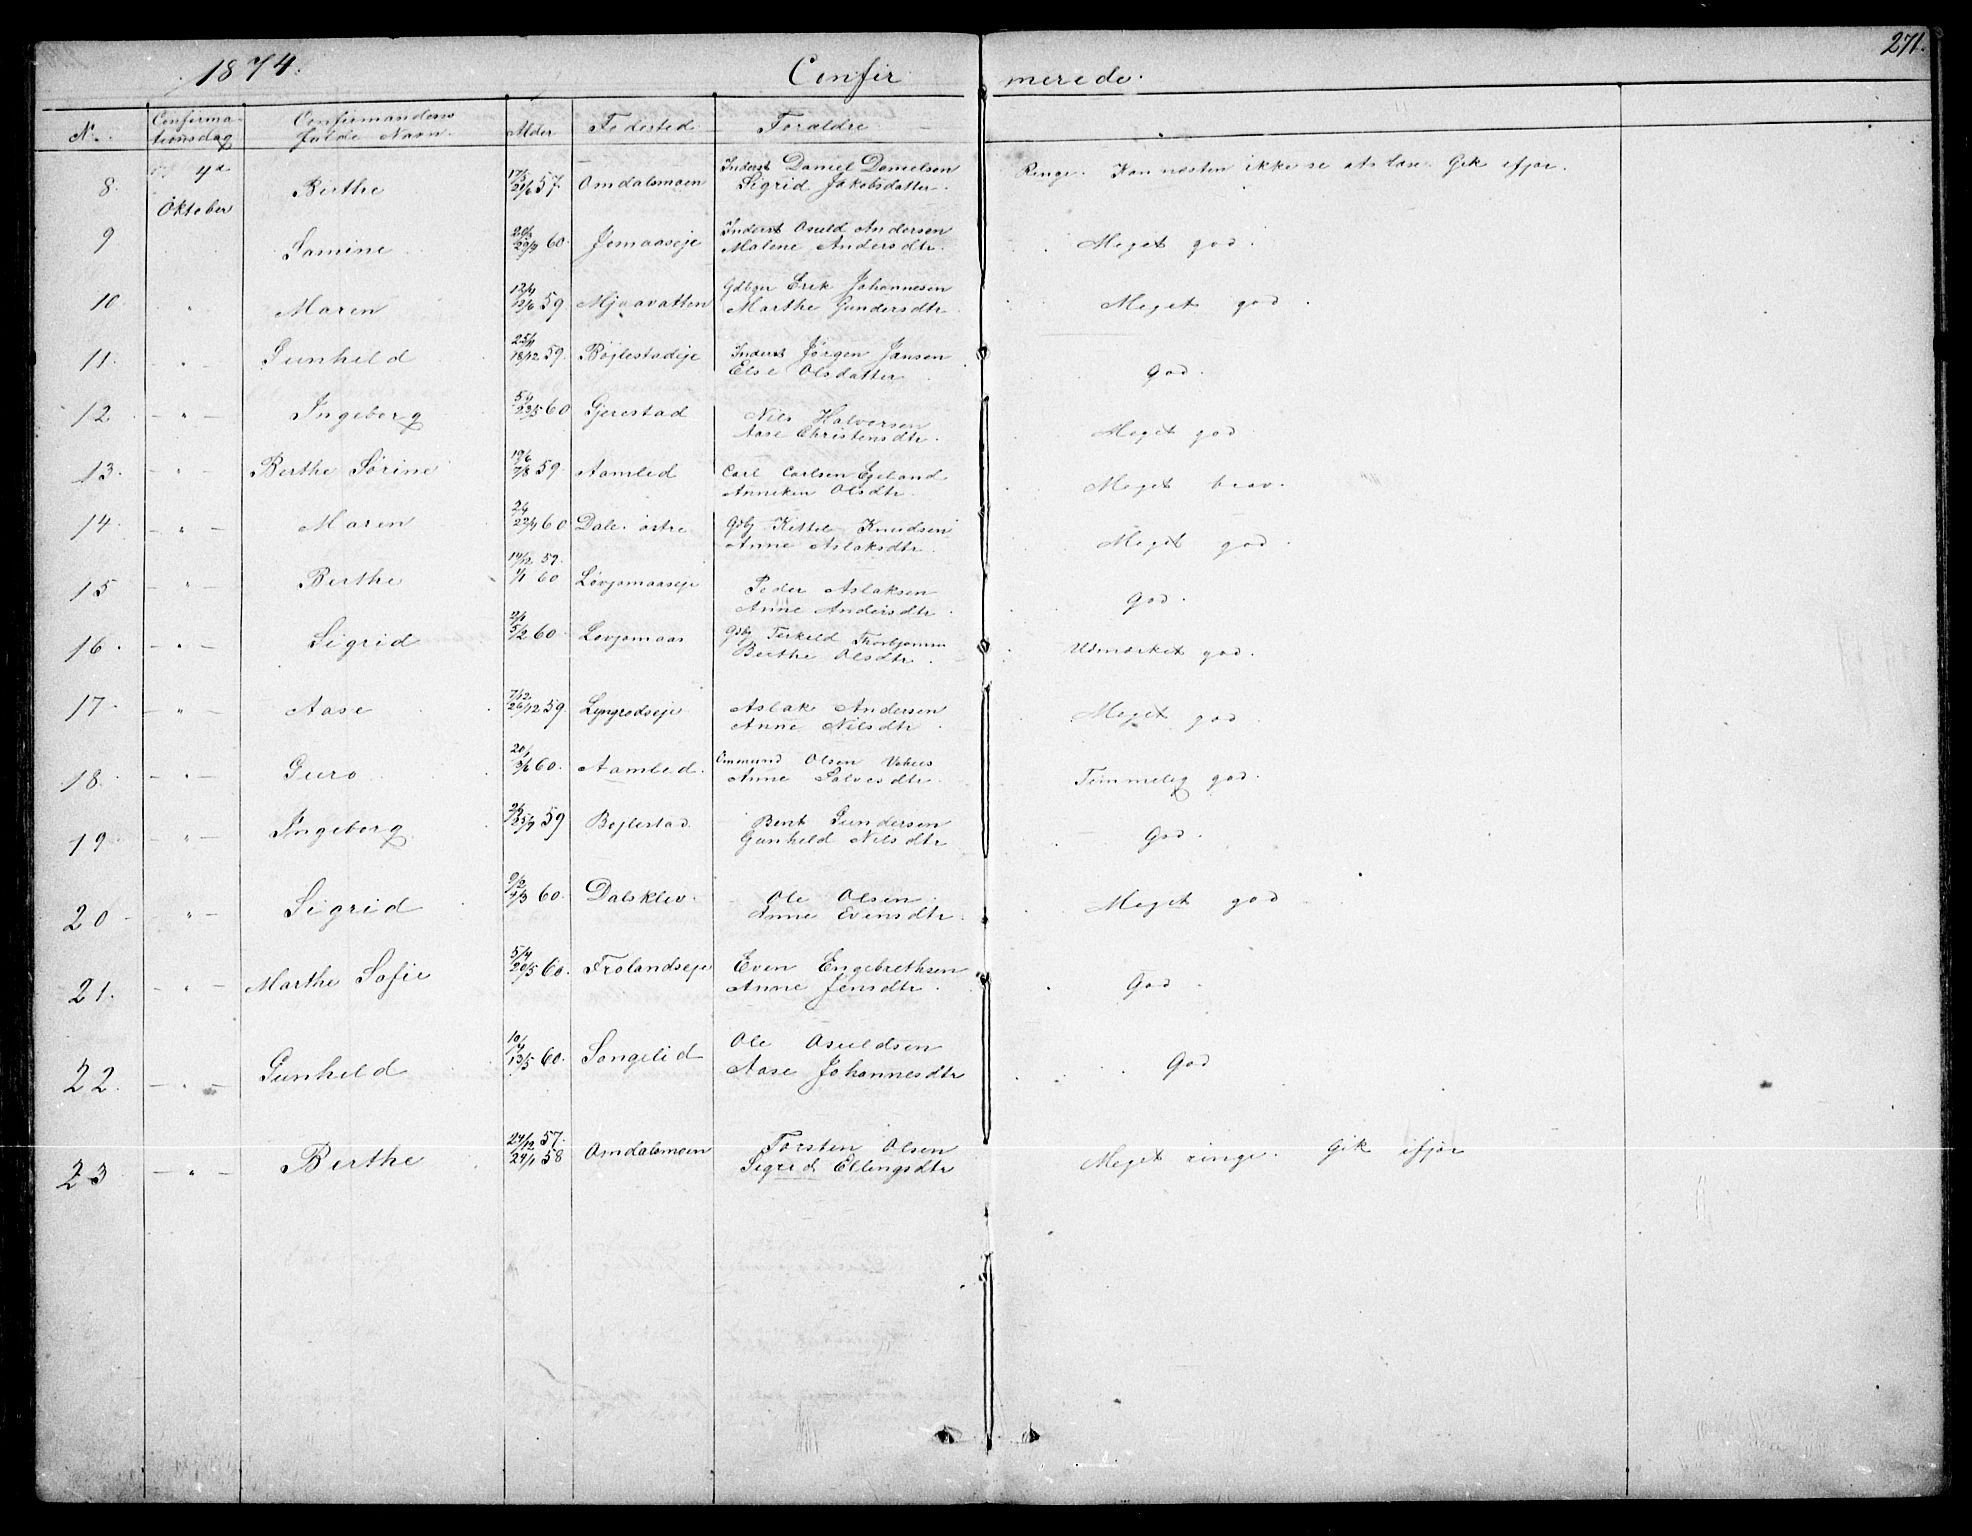 1874. Confirmerede. 271.
N. Confirmationsdag Confirmandens fulde Navn. Alder Fødested Forældre
8. 4de Oktober Berthe 17/5 21/6 57. Omdalsmoen Inderst Daniel Danielsen Ringe. Kan næsten ikke se at læse. Gik ifjor.
Sigrid Jakobsdatter.
9 Samine 60. Jomaaseje Inderst Osuld Andersen Meget god.
Malene Andersdtr.
10 " Maren 12/6 59 Mjaavatten Gdbgr Erik Johannesen Meget god.
Marthe Gundersdtr.
11. - " - Gunhild 18/12 59. Bøjlestadeje Inderst Jørgen Jansen God.
Else Olsdatter.
12 - " - Ingeborg 60 Gjerestad Nils Halvorsen Meget god.
Aase Christensdtr.
13. - " - Berthe Sørine 19/6 59. Aamlid Carl Carlsen Egeland Meget brav.
Anneken Olsdtr.
14. - " - Maren 60 Dale østre Gdbg Kittil Knudsen Meget god.
Anne Aslaksdtr.
15 - " - Berthe 14/12 59. 1/1 60 Løvjomaaseje Peder Aslaksen God.
Anne Andersdtr.
16. - " - Sigrid 2/1 5/2 60. Løvjomaas Gdbg Terkeld Udmærket god.
Berthe Olsdtr.
17. - " - Aase 7/12 26/12 59 Lyngrodseje Aslak Andersen Meget god.
Anne Nilsdtr.
18. - " - Guro 60. Aamlid. Ommund Olsen Meget Temmelig god.
Anne Salvesdtr.
19. - " - Ingeborg 59 Bøjlestad Bent Gundersen God.
Gunhild Nilsdtr
20 - " - Sigrid 9/2 4/3 60. Dalsklev. Ole Olsen. Meget god
Anne Evensdtr.
21. - " - Marthe Sofie 5/4 20/5 60. Frolandseje Even Engebrethsen God.
Anne Jensdtr.
22. - " - Gunhild 10/4 13/5 60. Songelid Ole Osuldsen God
Aase Johannesdtr
23 - " - Berthe 24/12 57. 24/1 58 Omdalsmoen Torsten Olsen Meget ringe. Gik ifjor
Sigrid Ellingsdtr